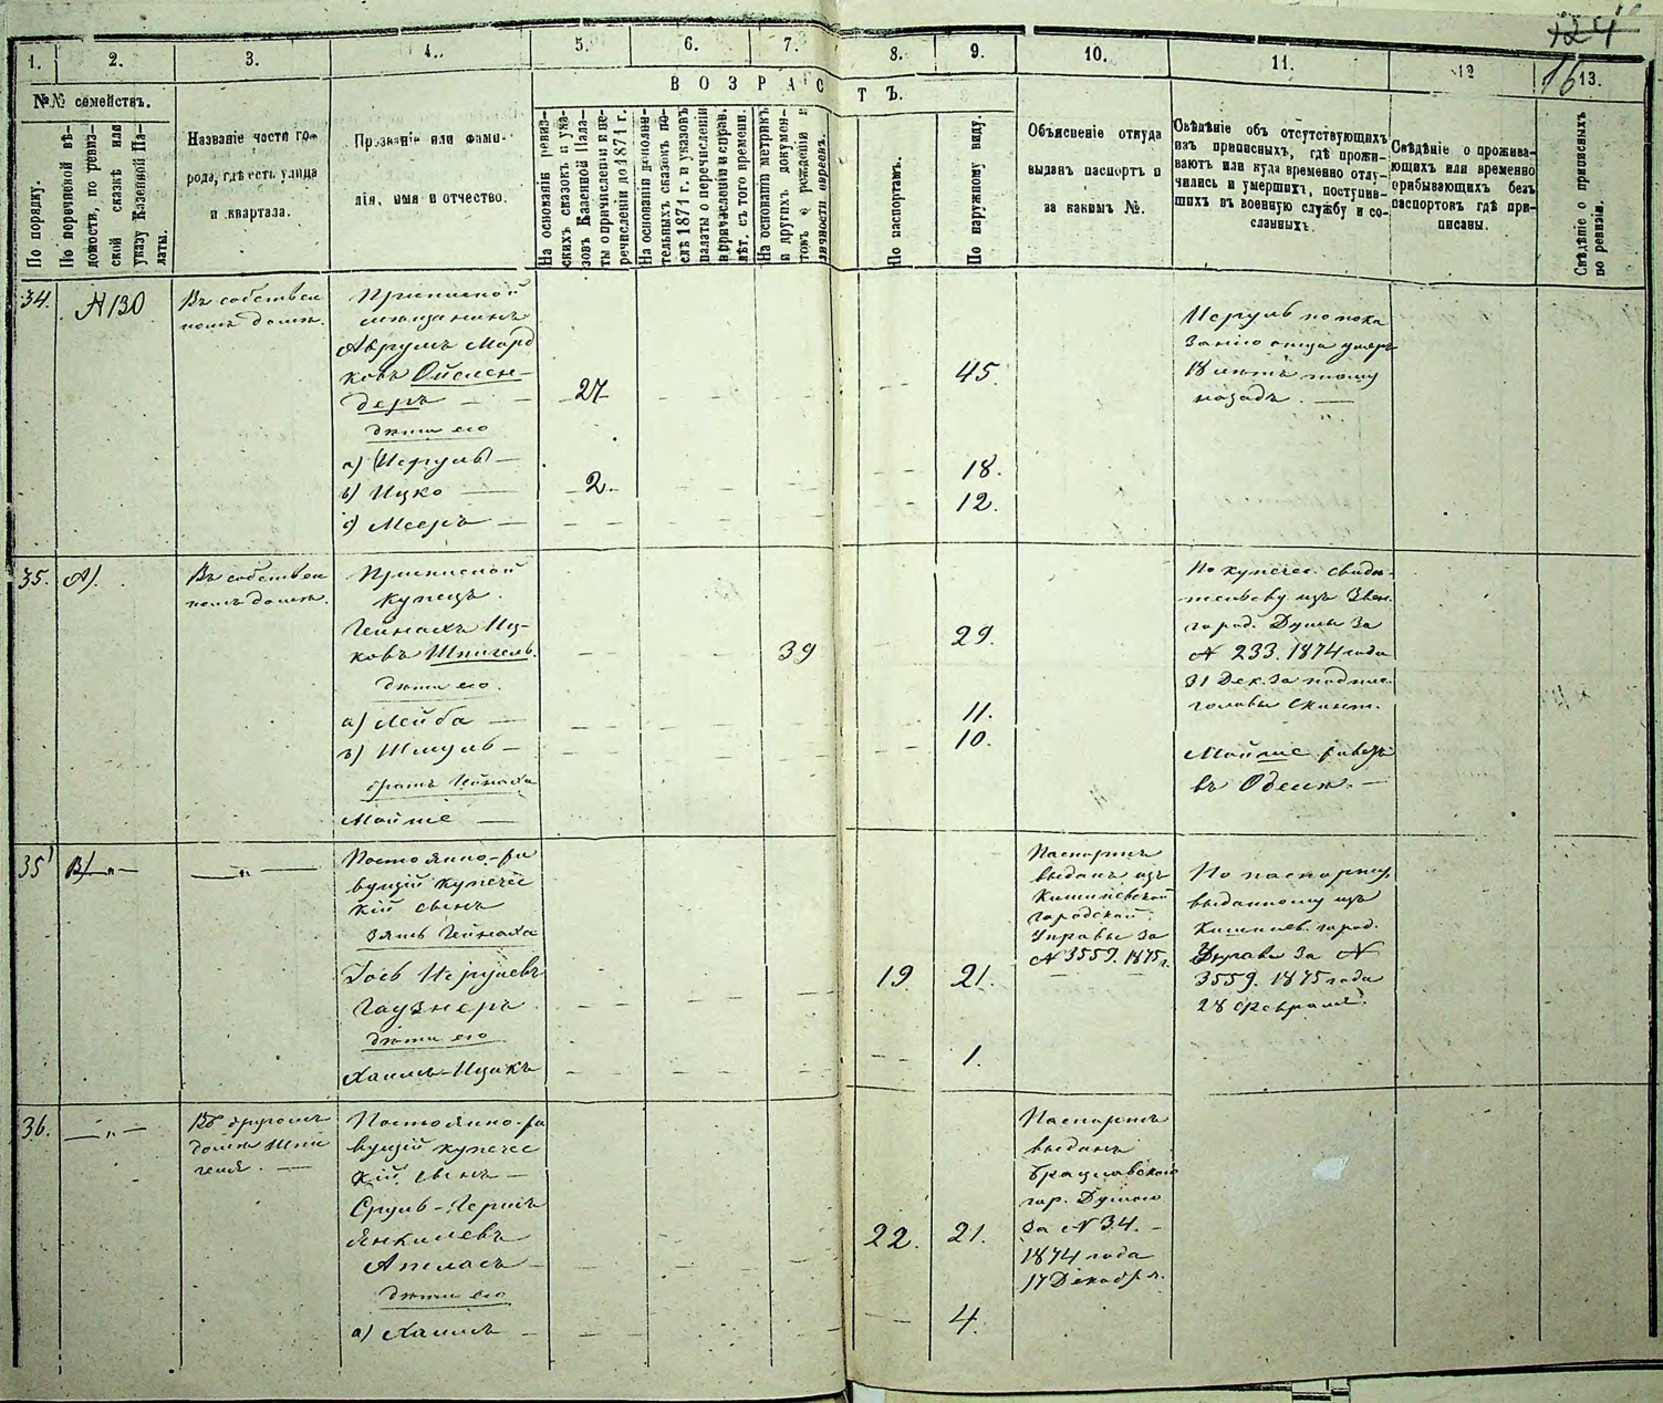 124
16
1. 2. 3. 4. 5. 6. 7. 8. 9. 10. 11. 12 13.
№№ семействъ.
В О З Р А С Т Ъ.
По порядку.
По перечневой вѣ-
домости, по ревиз-
ской сказкѣ или
указу Казенной Па-
латы.
Названіе части го-
рода, гдѣ есть улица
и квартала.
Прозваніе или фами-
лія, имя и отчество.
На основаніи ревиз-
скихъ сказокъ и ука-
зовъ Казенной Пала-
ты о причисленіи и пе-
речисленіи до 1871 г.
На основаніи дополни-
тельныхъ сказокъ по-
слѣ 1871 г. и указовъ
палаты о перечисленіи
и причисленіи и справ.
лѣт. съ того времени.
На основаніи метрикъ
и другихъ докумен-
товъ о рожденіи и
личности евреевъ.
По паспортамъ.
По наружному виду.
Объясненіе откуда
выданъ паспортъ и
за какимъ №.
Свѣдѣніе объ отсутствующихъ
изъ приписныхъ, гдѣ прожи-
ваютъ или куда временно отлу-
чились и умершихъ, поступив-
шихъ въ военную службу и со-
сланныхъ.
Свѣдѣніе о прожива-
ющихъ или временно
прибывающихъ безъ
паспортовъ гдѣ при-
писаны.
Свѣдѣніе о приписныхъ
по ревизіи.
34. № 130
Въ собствен
номъ домѣ.
Приписной
мѣщанинъ
Аврумъ Морд
ковъ Ойслен-
деръ — 27 45.
дѣти его
а) (Исруль) — 2. 18.
в) Ицко — 12.
с) Мееръ —
Исруль по пока
занію отца умеръ
18 лѣтъ тому
назадъ. —
35. А).
Въ собствен
номъ домѣ.
Приписной
купецъ.
Гейнахъ Иц-
ковъ Шпигель. 39 29.
дѣти его.
а) Лейба — 11.
в) Шмуль — 10.
братъ Гейнаха
Мойше —
По купечес. свидѣ-
тельству изъ Звен.
город. Думы за
№ 233. 1874 года
31 Дек. за подпис.
головы
Мойше живетъ
въ Одессѣ. —
35 В) —"— —"—
Постоянно-жи
вущій купечес
кій сынъ
зять Гейнаха
Гось Исрулевъ
Гаузнеръ 19 21.
дѣти его
Хаимъ-Ицикъ 1.
Паспортъ
выданъ изъ
Кишиневской
городской
Управы за
№ 3559. 1875 г.
По паспорту,
выданному изъ
Кишинев. город.
Управы за №
3559. 1875 года
28 Февраля.
36. —"—
Въ другомъ
домѣ Шпи
геля. —
Постоянно-жи
вущій купечес
кій сынъ —
Сруль-Герш
Янкилевъ
Апласъ 22. 21.
дѣти его
а) Хаимъ — 4.
Паспортъ
выданъ
Брацлавскою
гор. Думою
за № 34. —
1874 года
17 Декабря.